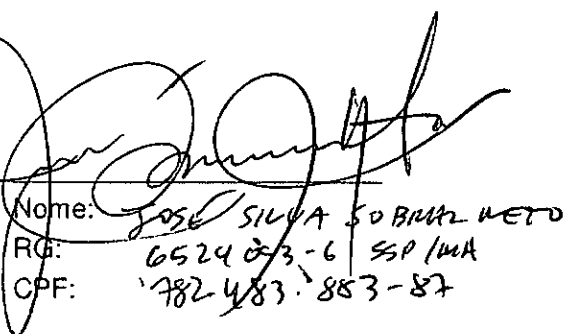 Nome: JOSÉ SILVA SOBRAL NETO
RG: 6524053-6 SSP/MA
CPF: 782.483.883-87